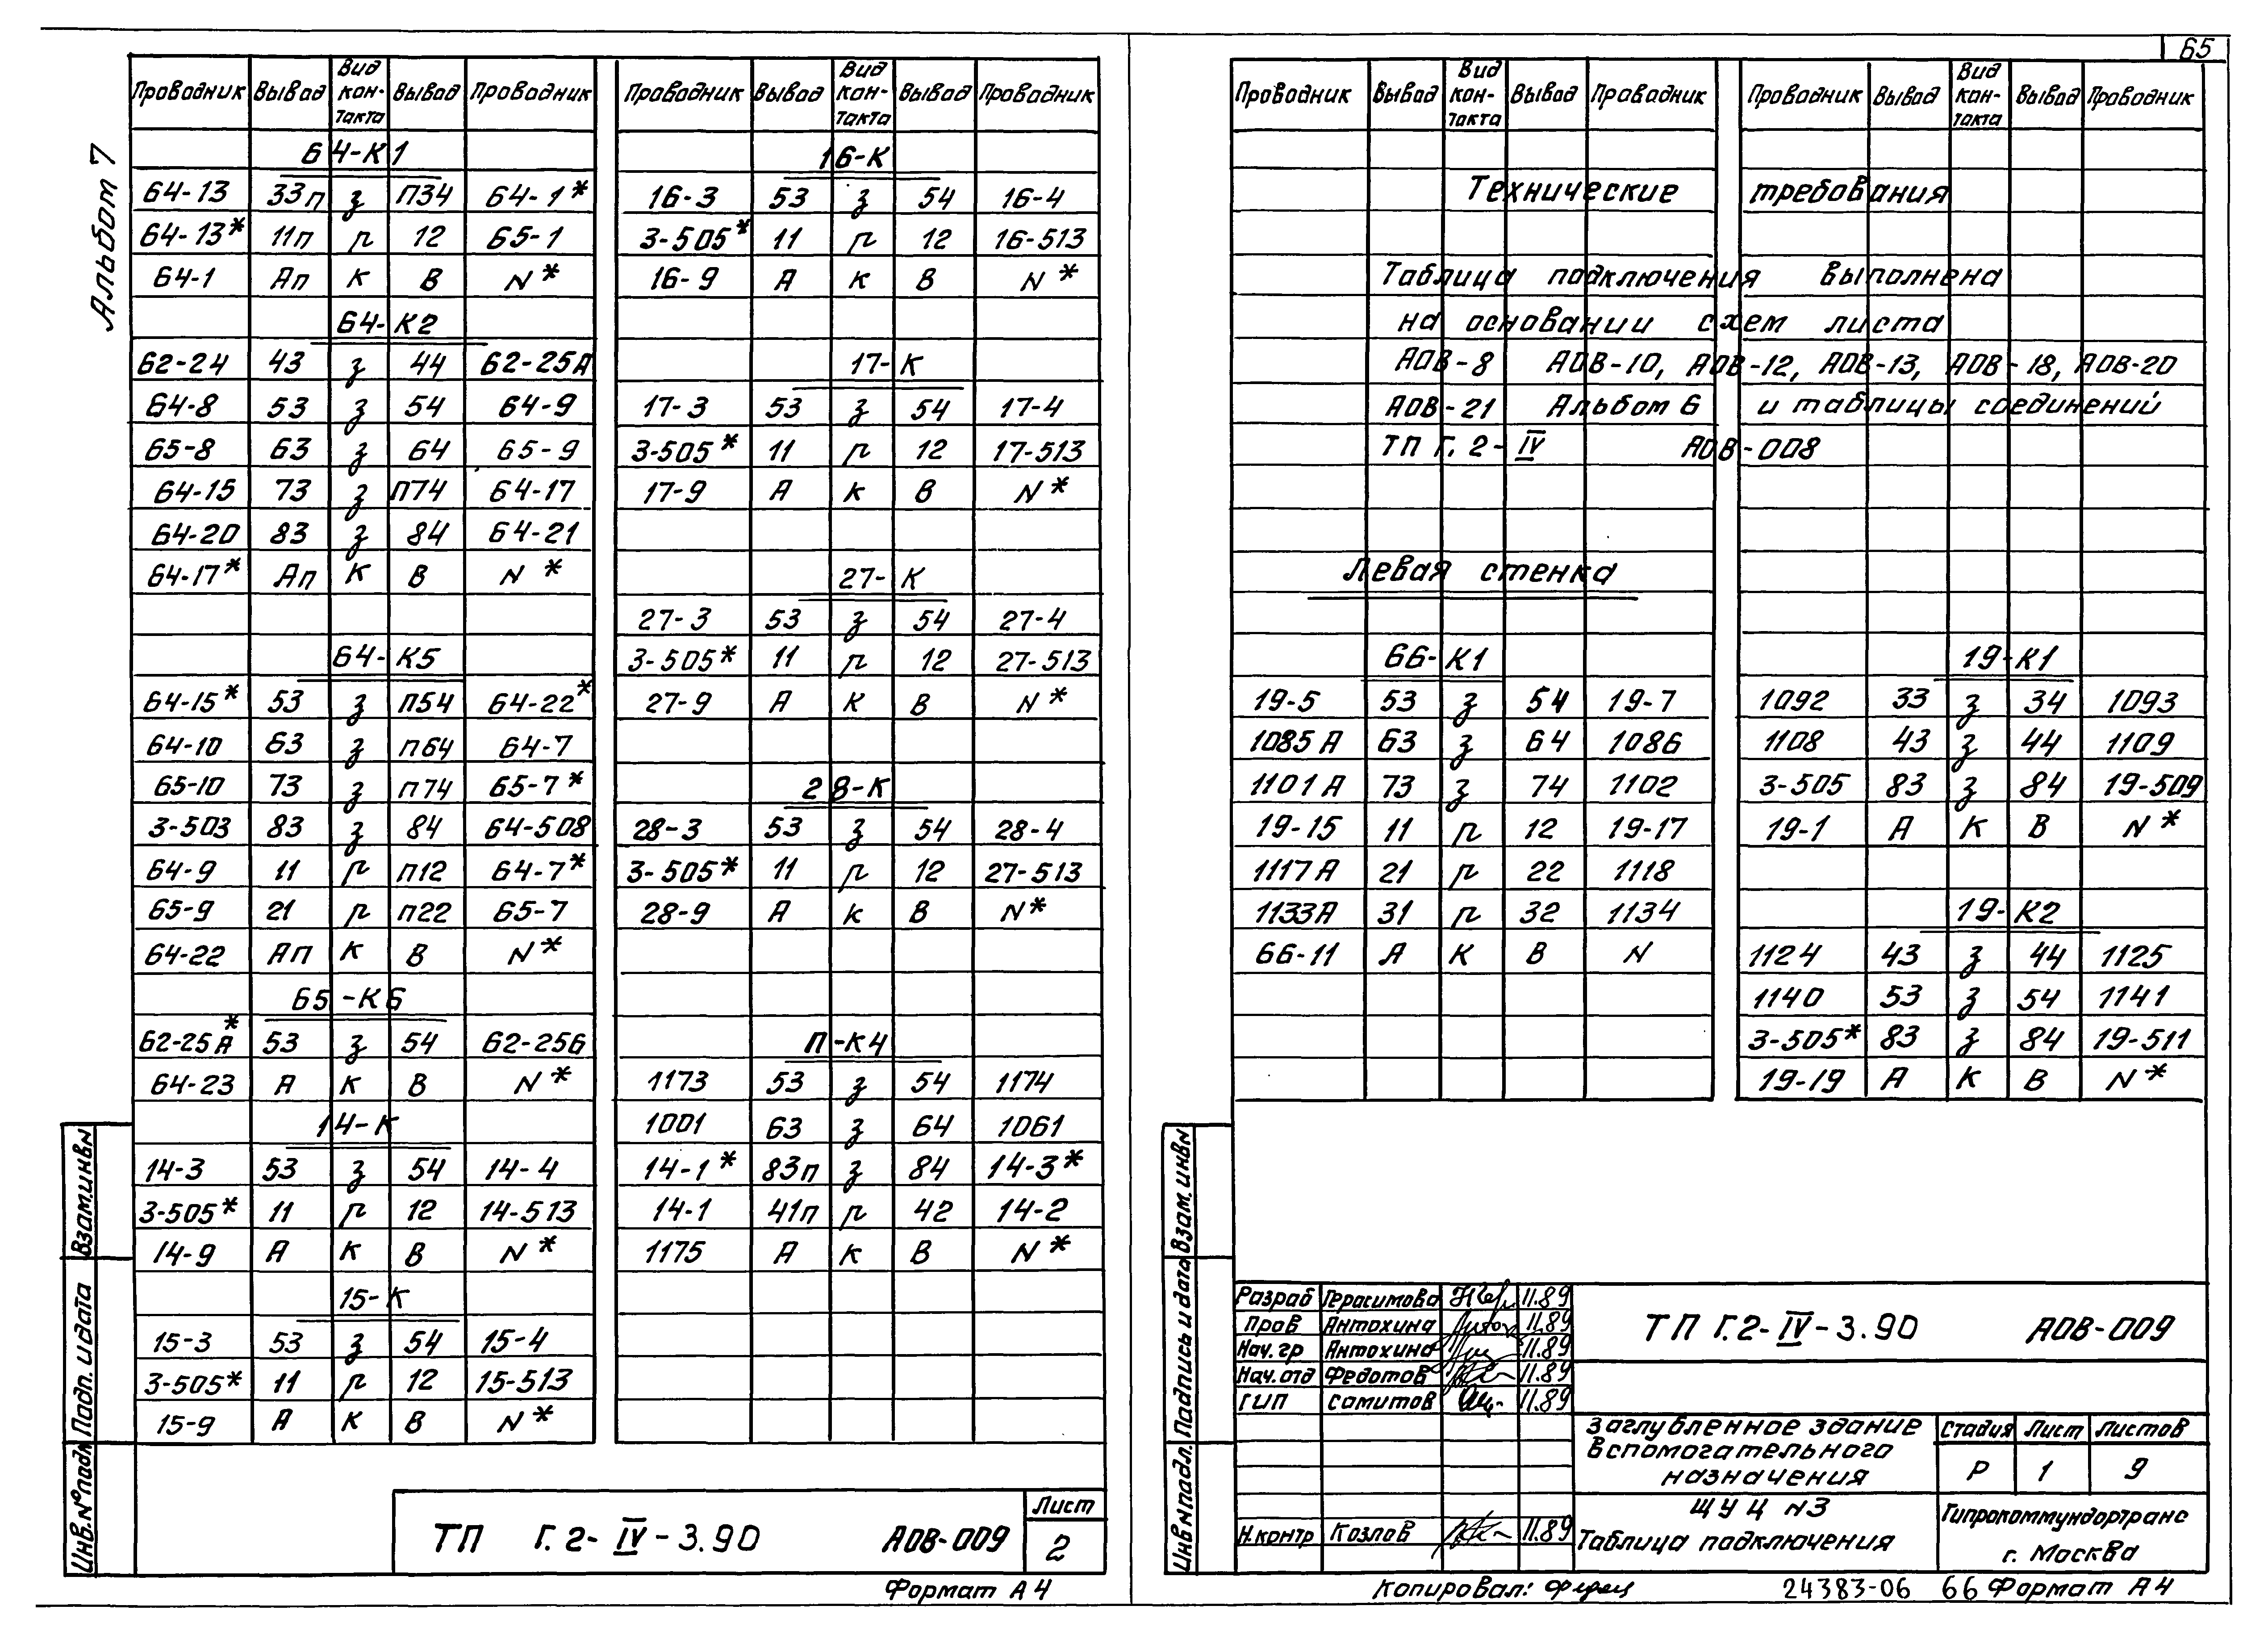 65
Альбом 7
Проводник Вывод Вид кон-такта Вывод Проводник
64-К1
64-13 33п з п34 64-1*
64-13* 11п р 12 65-1
64-1 Ап К В N*
64-К2
62-24 43 з 44 62-25А
64-8 53 з 54 64-9
65-8 63 з 64 65-9
64-15 73 з П74 64-17
64-20 83 з 84 64-21
64-17* Ап К В N*
64-К5
64-15* 53 з п54 64-22*
64-10 63 з п64 64-7
65-10 73 з п74 65-7*
3-503 83 з 84 64-508
64-9 11 р п12 64-7*
65-9 21 р п22 65-7
64-22 Ап К В N*
65-К6
62-25А* 53 з 54 62-25б
64-23 А К В N*
14-К
14-3 53 з 54 14-4
3-505* 11 р 12 14-513
14-9 А К В N*
15-К
15-3 53 з 54 15-4
3-505* 11 р 12 15-513
15-9 А К В N*
Проводник Вывод Вид кон-такта Вывод Проводник
16-К
16-3 53 з 54 16-4
3-505* 11 р 12 16-513
16-9 А К В N*
17-К
17-3 53 з 54 17-4
3-505* 11 р 12 17-513
17-9 А К В N*
27-К
27-3 53 з 54 27-4
3-505* 11 р 12 27-513
27-9 А К В N*
28-К
28-3 53 з 54 28-4
3-505* 11 р 12 27-513
28-9 А К В N*
П-К4
1173 53 з 54 1174
1001 63 з 64 1061
14-1* 83п з 84 14-3*
14-1 41п р 42 14-2
1175 А К В N*
Взам.инвN
Подп. и дата
Инв.N°подл
ТП Г.2-IV-3.90 АОВ-009
Лист
2
Формат А4
Проводник Вывод Вид кон-такта Вывод Проводник
Проводник Вывод Вид кон-такта Вывод Проводник
Технические требования
Таблица подключения выполнена
на основании схем листа
АОВ-8 АОВ-10, АОВ-12, АОВ-13, АОВ-18, АОВ-20
АОВ-21 Альбом 6 и таблицы соединений
ТП Г.2-IV АОВ-008
Левая стенка
66-К1
19-5 53 з 54 19-7
1085А 63 з 64 1086
1101А 73 з 74 1102
19-15 11 р 12 19-17
1117А 21 р 22 1118
1133А 31 р 32 1134
66-11 А К В N
19-К1
1092 33 з 34 1093
1108 43 з 44 1109
3-505 83 з 84 19-509
19-1 А К В N*
19-К2
1124 43 з 44 1125
1140 53 з 54 1141
3-505* 83 з 84 19-511
19-19 А К В N*
Взам.инвN
Подпись и дата
Инв N подл.
Разраб Герасимова 11.89
Пров Антохина 11.89
Нач.гр Антохина 11.89
Нач.отд Федотов 11.89
ГИП Самитов 11.89
Н.контр Козлов 11.89
ТП Г.2-IV-3.90 АОВ-009
Заглубленное здание
вспомогательного
назначения
Стадия Лист Листов
Р 1 9
ЩУЦ N3
Таблица подключения
Гипрокоммундортранс
г. Москва
Копировал:
24383-06 66 Формат А4